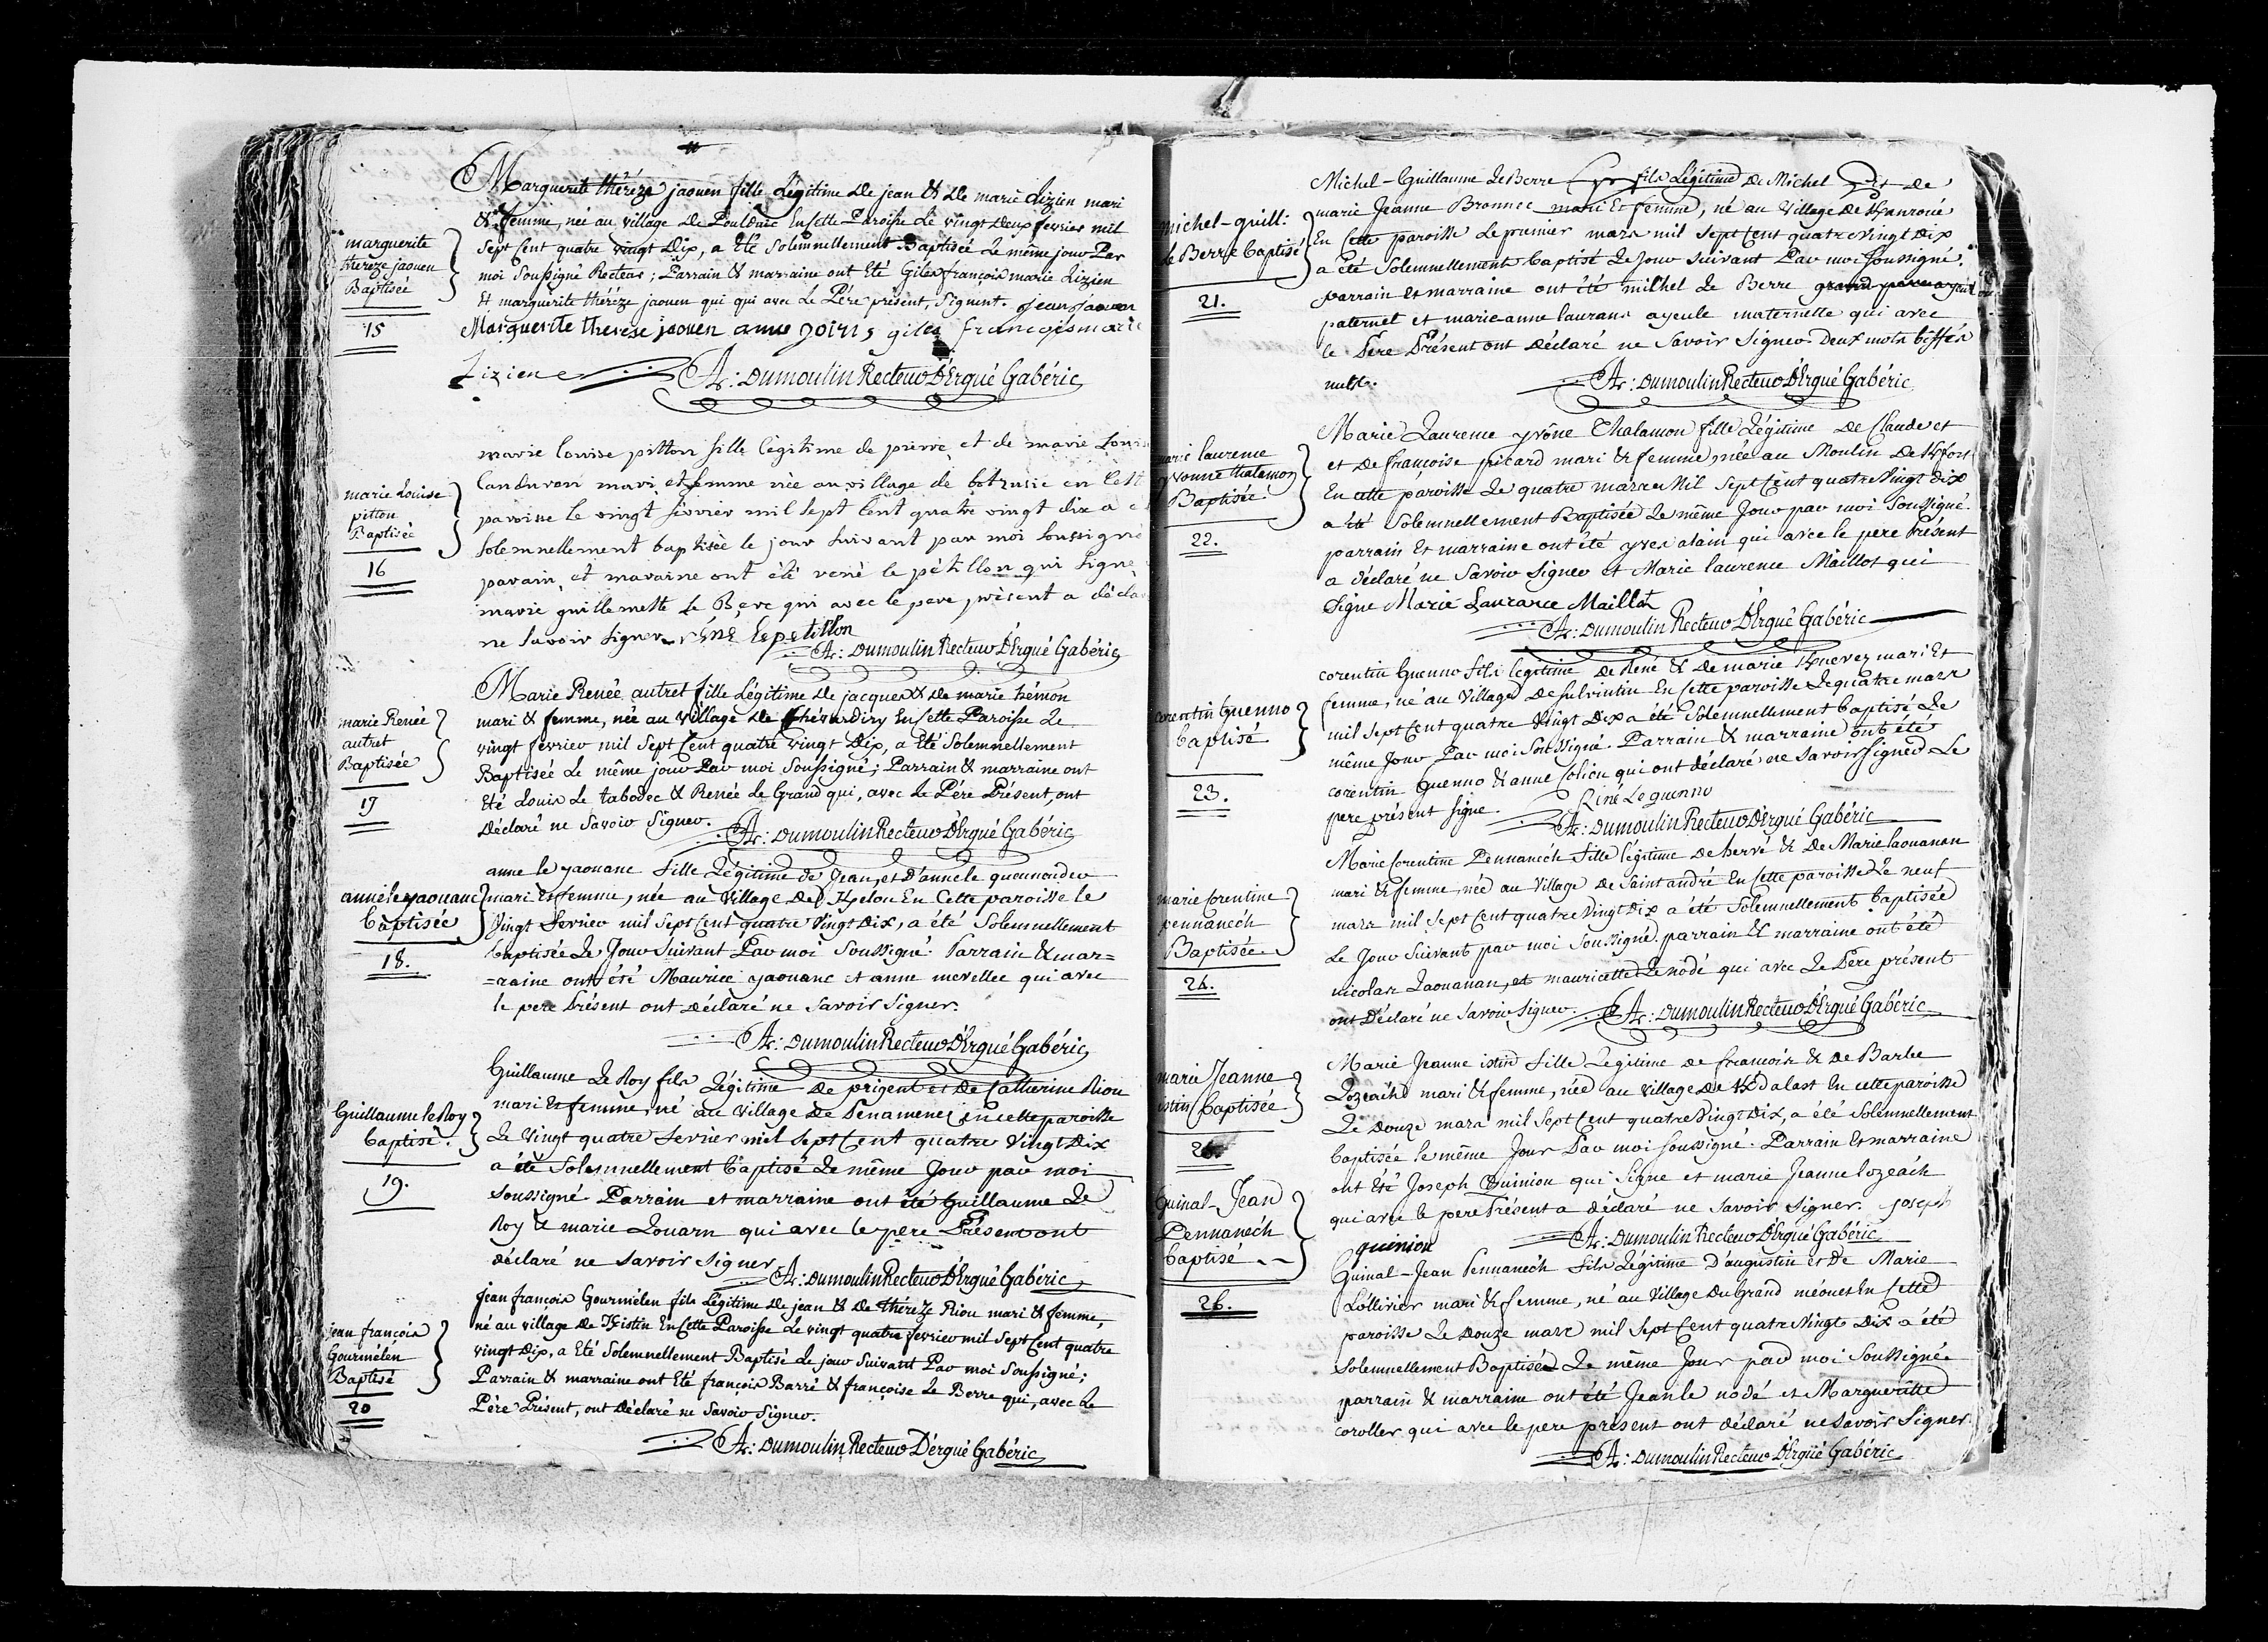 Marguerite thérèze jaouen fille Légitime de jean & de marie Lizien mari
& femme, née au village de Poulduic En Cette Paroisse Le vingt Deux fevrier mil
marguerite
thereze jaouen
Baptisée
15
Sept Cent quatre vingt Dix, a Eté Solemnellement Baptisée Le même jour Par
moi Soussigné Recteur ; Parrain & marraine ont Eté Giles françois marie Lizien
Et marguerite thérèze jaouen qui qui avec Le Pére présent, Signent. jean jaouen
Marguerite therese jaouen anne goiris giles francoismarie
Lizien A: Dumoulin Recteur D'Ergué Gabéric
marie Louise
pitton
Baptisée
16
marie louise pitton fille légitime de pierre et de marie Louise
Canduron mari et femme née au village de botzusic en Cette
paroisse le vingt février mil sept Cent quatre vingt dix a
Solemnellement baptisée le jour Suivant par moi Soussigné
parain et maraine ont été réné le pétillon qui Signe
marie guillemette Le Berre qui avec le pere présent a déclaré
ne Savoir Signer réné le petillon
A: Dumoulin Recteur D'Ergué Gabéric
marie Renée
autret
Baptisée
17
Marie Renée autret fille Légitime de jacques & de marie hémon
mari & femme, née au village de Chévardiry En Cette Paroisse Le
vingt fevrier mil Sept Cent quatre vingt Dix, a Eté Solemnellement
Baptisée Le même jour Par moi Soussigné ; Parrain & marraine ont
Eté Louis Le tabodec & Renée Le Grand qui, avec Le Pére Présent, ont
Déclaré ne Savoir Signer.
A: Dumoulin Recteur D'Ergué Gabéric
anne le yaouanc
baptisée
18.
anne le yaouanc fille Légitime de Jean, et D'anne le quennoudeu
mari Et femme, née au Village De Kpelou En Cette paroisse le
Vingt fevrier mil Sept Cent quatre Vingt Dix, a été Solemnellement
baptisée Le Jour Suivant Par moi Soussigné. Parrain & mar=
=raine ont été Maurice yaouanc et anne mevellec qui avec
le pere Présent ont Déclaré ne Savoir Signer.
A: Dumoulin Recteur D'Ergué Gabéric
Guillaume le Roy
baptisé.
19.
Guillaume Le Roy fils Légitime De prigent et De Catherine Riou
mari Et femme, né au Village De Penamenez En cette paroisse
Le Vingt quatre fevrier mil Sept Cent quatre Vingt Dix
a été Solemnellement baptisé Le même Jour par moi
Soussigné Parrain et marraine ont été Guillaume Le
Roy & marie Louarn qui avec le pere Présent ont
déclaré ne Savoir Signer
A: Dumoulin Recteur D'Ergué Gabéric
jean françois
Gourmélen
Baptisé
20
jean françois Gourmélen fils Légitime de jean & de thérèze Riou mari & femme,
né au village de Kistin En Cette Paroisse Le vingt quatre fevrier mil Sept Cent quatre
vingt Dix, a Eté Solemnellement Baptisé Le jour Suivant Par moi Soussigné ;
Parrain & marraine ont Eté françois Barré & françoise Le Berre qui, avec Le
Pére Présent, ont Déclaré ne Savoir Signer.
A: Dumoulin Recteur D'érgué Gabéric
michel-guill:
le Berre baptisé
21.
Michel-Guillaume Le Berre fils Légitime De Michel Et De
marie Jeanne Bronnec mari Et femme, né au Village De Kanroué
En Cette paroisse Le premier mars mil Sept Cent quatre Vingt Dix
a été Solemnellement baptisé Le Jour Suivant Par moi Soussigné.
parrain Et marraine ont été michel Le Berre grand pere ayeul
paternel et marie anne laurans ayeule maternelle qui avec
le Pere Présent ont Déclaré ne Savoir Signer Deux mots biffés
nuls.
A: Dumoulin Recteur D'Ergué Gabéric
marie laurence
yvonne thalamon
Baptisée
22.
Marie Laurence yvône Thalamon fille Légitime De Claude et
et De françoise picard mari & femme, née au Moulin De Kfort
En cette paroisse Le quatre mars Mil Sept Cent quatre Vingt Dix
a été Solemnellement Baptisée Le même Jour par moi Soussigné.
parrain Et marraine ont été yves alain qui avec le pere Présent
a déclaré ne Savoir Signer et Marie laurence Maillot qui
Signe Marie Laurance Maillot
A: Dumoulin Recteur D'Ergué Gabéric
corentin Guenno
baptisé
23.
corentin Guenno fils légitime De René & De marie Knevez mari Et
femme, né au Village De Sulvintin En Cette paroisse Le quatre mars
mil Sept Cent quatre Vingt Dix a été Solemnellement baptisé Le
même Jour Par moi Soussigné. Parrain & marraine ont été
corentin Guenno & anne Colicu qui ont déclaré ne Savoir Signer Le
pere présent Signe. Riné Leguenno
A: Dumoulin Recteur D'Ergué Gabéric
marie Corentine
pennanéch
Baptisée
24.
Marie Corentine Pennanéch fille légitime De hervé & De Marie laouanan
mari & femme, née au Village De Saint andré En Cette paroisse Le neuf
mars mil Sept Cent quatre Vingt Dix a été Solemnellement baptisée
Le Jour Suivant par moi Soussigné. parrain & marraine ont été
nicolas Laouanan, et mauricette Le nodé qui avec Le Pere présent
ont Déclaré ne Savoir Signer. A: Dumoulin Recteur D'Ergué Gabéric
marie Jeanne
istin baptisée
Marie Jeanne istin fille Légitime de francois & De Barbe
Lozeach mari & femme, née au Village De Kdalast En cette paroisse
Le Douze mars mil Sept Cent quatre Vingt Dix, a été Solemnellement
baptisée le même Jour Par moi Soussigné. Parrain Et marraine
ont Eté Joseph Quiniou qui Signe et marie Jeanne lozeach
qui avec le pere Présent a déclaré ne Savoir Signer. Joseph
quiniou A: Dumoulin Recteur D'Ergué Gabéric
Guinal-Jean
Pennanéch
baptisé
26.
Guinal-Jean Pennanéch fils Légitime D'augustin et De Marie
Lollivier mari & femme, né au Village Du Grand méouet En Cette
paroisse Le Douze mars mil Sept Cent quatre Vingt Dix a été
Solemnellement Baptisé Le même Jour par moi Soussigné
parrain & marraine ont été Jean le nodé et Margueritte
coroller qui avec le pere présent ont déclaré ne Savoir Signer
A: Dumoulin Recteur D'Ergué Gabéric